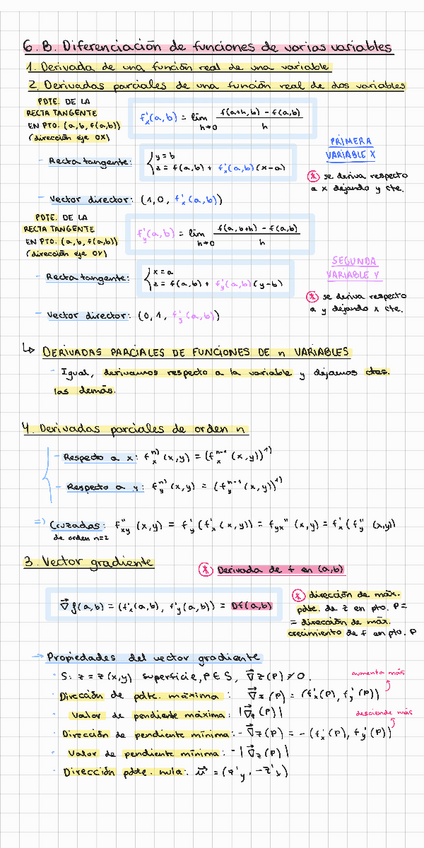 6.B. Diferenciación de funciones de varias variables
1. Derivada de una función real de una variable
2. Derivadas parciales de una función real de dos variables
PDTE. DE LA
RECTA TANGENTE
EN PTO. (a,b,f(a,b))
(dirección eje OX)
f'x(a,b) = lím h→0 f(a+h,b) - f(a,b) / h
PRIMERA
VARIABLE X
- Recta tangente: { y = b
z = f(a,b) + f'x(a,b)(x-a)
* se deriva respecto
a x dejando y cte.
- Vector director: (1,0, f'x(a,b))
PDTE. DE LA
RECTA TANGENTE
EN PTO. (a,b,f(a,b))
(dirección eje OY)
f'y(a,b) = lím h→0 f(a,b+h) - f(a,b) / h
SEGUNDA
VARIABLE Y
- Recta tangente: { x = a
z = f(a,b) + f'y(a,b)(y-b)
* se deriva respecto
a y dejando x cte.
- Vector director: (0,1, f'y(a,b))
↳ DERIVADAS PARCIALES DE FUNCIONES DE n VARIABLES
- Igual, derivamos respecto a la variable y dejamos ctes.
las demás.
4. Derivadas parciales de orden n
- Respecto a x: f x n) (x,y) = (f x n-1 (x,y)) 1)
- Respecto a y: f y n) (x,y) = (f y n-1 (x,y)) 1)
=> Cruzadas: f''xy (x,y) = f'y (f'x (x,y)) = fyx'' (x,y) = f'x (f'y (x,y))
de orden n=2
3. Vector gradiente
* Derivada de f en (a,b)
∇f(a,b) = (f'x(a,b), f'y(a,b)) = Df(a,b)
* dirección de máx.
pdte. de z en pto. P =
= dirección de máx.
crecimiento de f en pto. P
→ Propiedades del vector gradiente
- S: z = z(x,y) superficie, P ∈ S, ∇z(P) ≠ 0.
aumenta más
- Dirección de pdte máxima: ∇z(P) = (fx'(P), fy'(P))
- Valor de pendiente máxima: |∇z(P)|
desciende más
- Dirección de pendiente mínima: -∇z(P) = -(fx'(P), fy'(P))
- Valor de pendiente mínima: -|∇z(P)|
- Dirección pdte. nula: u = (z'y, -z'x)